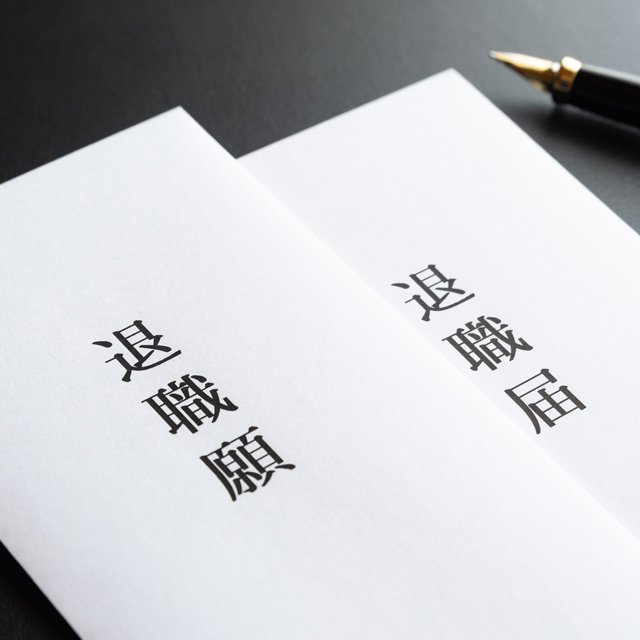 退職願
退職届